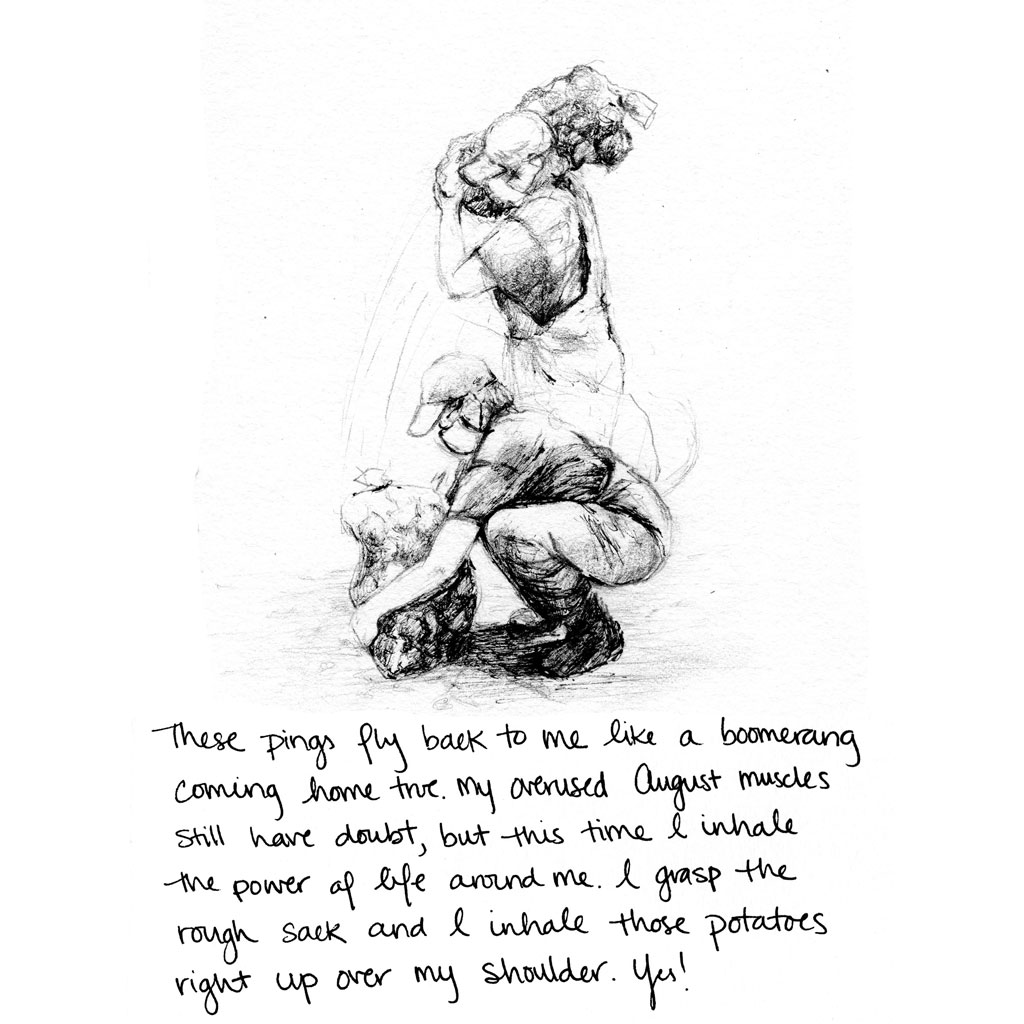 These pings fly back to me like a boomerang
coming home true. My overused August muscles
still have doubt, but this time I inhale
the power of life around me. I grasp the
rough sack and I inhale those potatoes
right up over my shoulder. Yes!